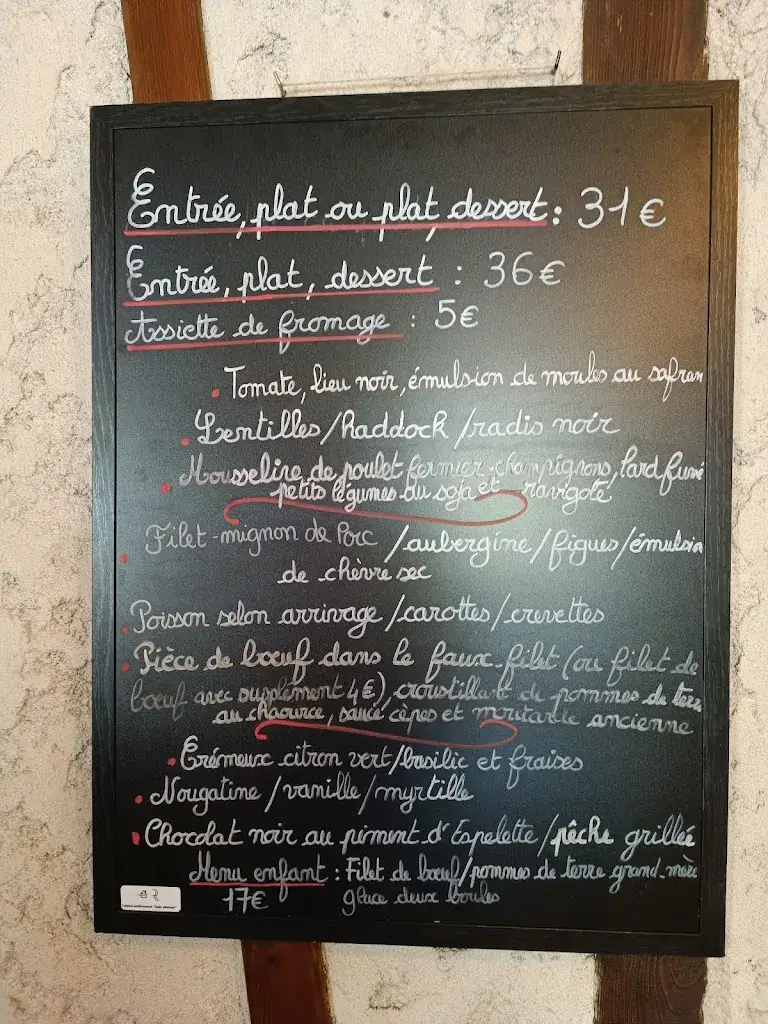 Entrée, plat ou plat, dessert : 31€
Entrée, plat, dessert : 36€
Assiette de fromage : 5€
Tomate, lieu noir, émulsion de moules au safran
Lentilles/haddock/radis noir
Mousseline de poulet fermier, champignons, lard fumé
petits légumes du soja et ravigote
Filet-mignon de Porc /aubergine/figues/émulsion
de chèvre sec
Poisson selon arrivage/carottes/crevettes
Pièce de bœuf dans le faux-filet (ou filet de
bœuf avec supplément 4€), croustillant de pommes de terre
au chaource, sauce cèpes et moutarde ancienne
Crémeux citron vert/basilic et fraises
Nougatine/vanille/myrtille
Chocolat noir au piment d'Espelette/pêche grillée
Menu enfant : Filet de bœuf/pommes de terre grand-mère
17€ glace deux boules